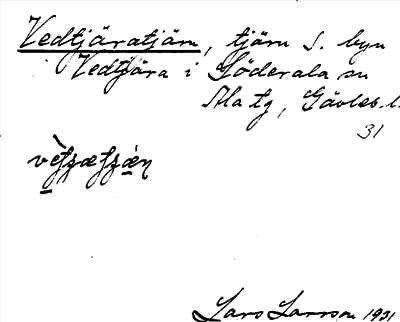 Vedtjäratjärn, tjärn S. byn
Vedtjära i Söderala sn
Ala tg, Gävleb. l.
31
Lars Larsson 1931